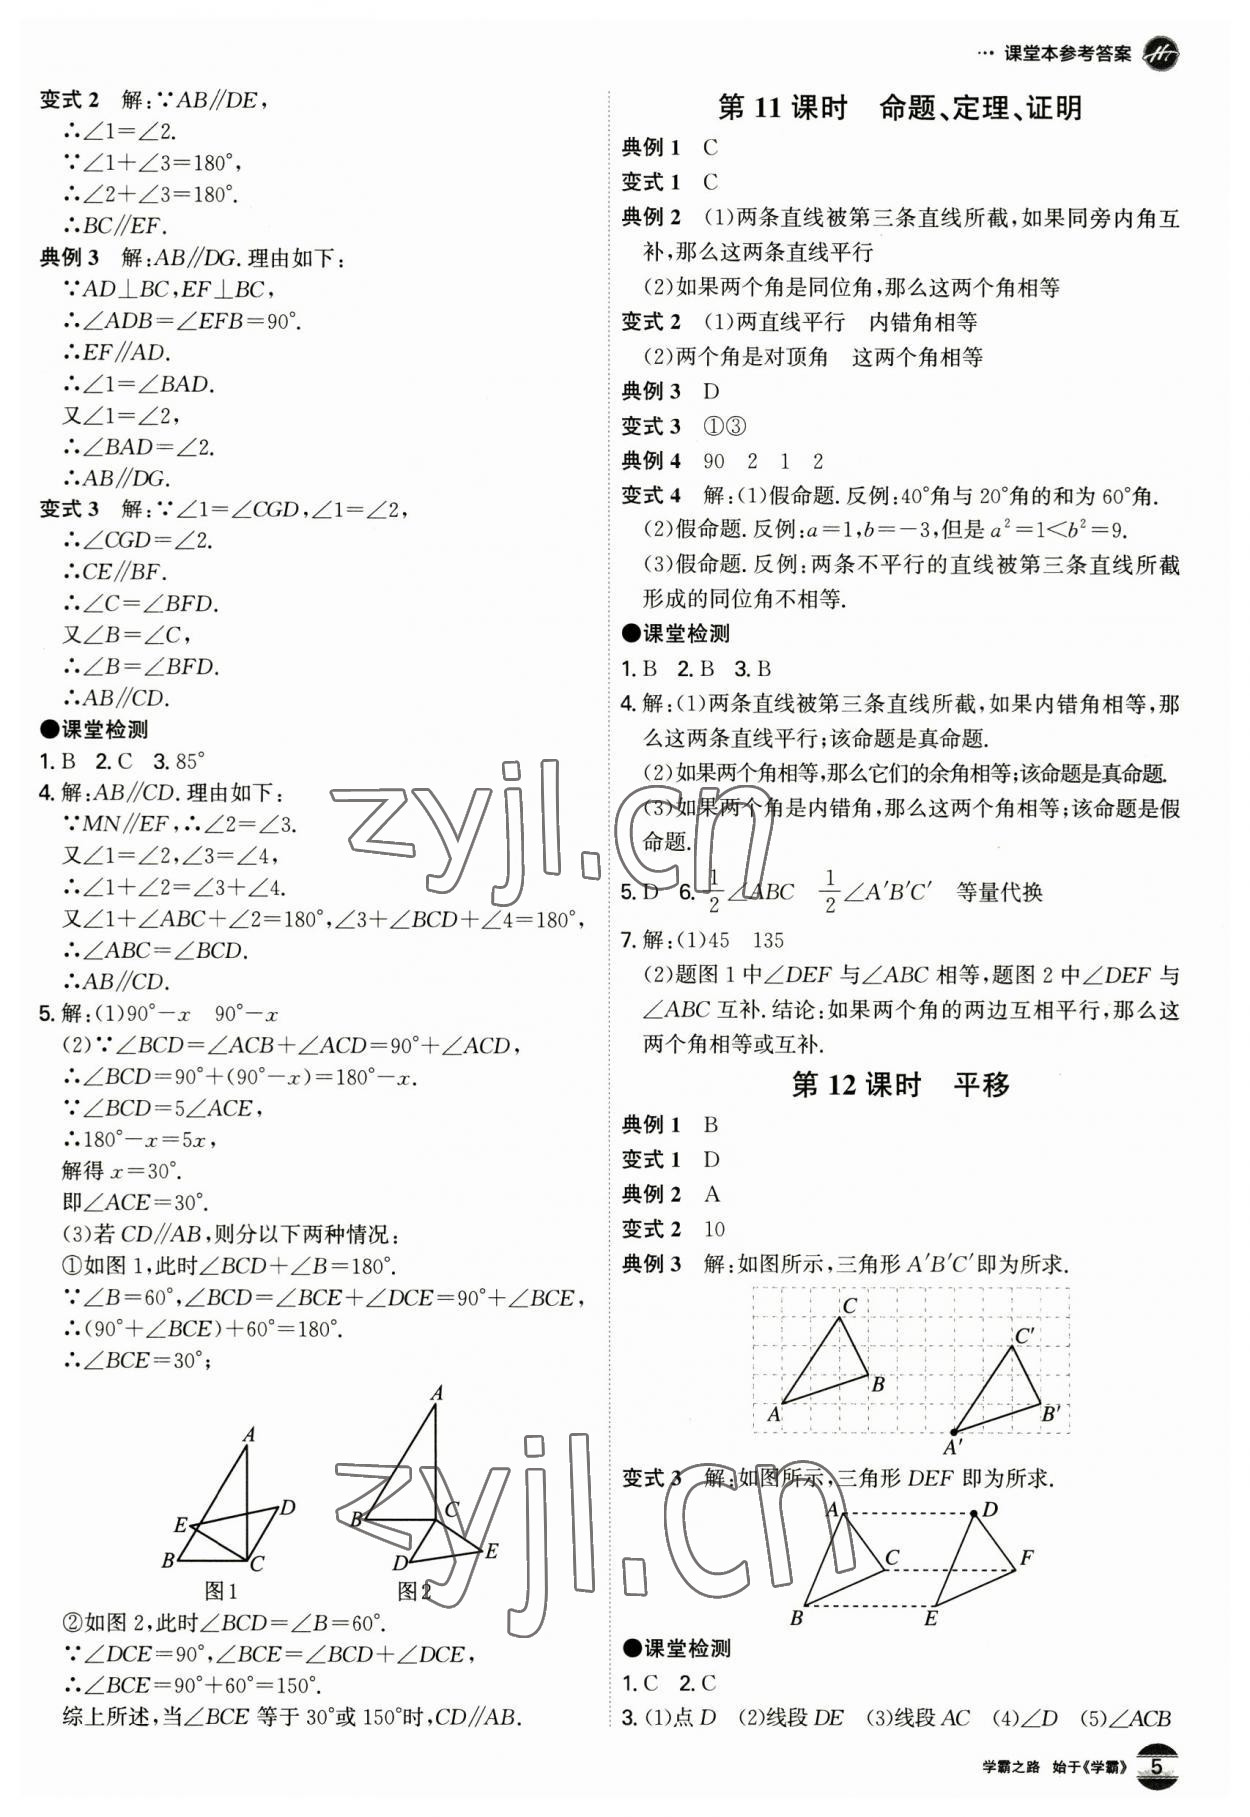 … 课堂本参考答案
变式 2　解:∵AB∥DE,
∴∠1=∠2.
∵∠1+∠3=180°,
∴∠2+∠3=180°.
∴BC∥EF.
典例 3　解:AB∥DG.理由如下:
∵AD⊥BC,EF⊥BC,
∴∠ADB=∠EFB=90°.
∴EF∥AD.
∴∠1=∠BAD.
又∠1=∠2,
∴∠BAD=∠2.
∴AB∥DG.
变式 3　解:∵∠1=∠CGD,∠1=∠2,
∴∠CGD=∠2.
∴CE∥BF.
∴∠C=∠BFD.
又∠B=∠C,
∴∠B=∠BFD.
∴AB∥CD.
●课堂检测
1. B　2. C　3. 85°
4. 解:AB∥CD.理由如下:
∵MN∥EF,∴∠2=∠3.
又∠1=∠2,∠3=∠4,
∴∠1+∠2=∠3+∠4.
又∠1+∠ABC+∠2=180°,∠3+∠BCD+∠4=180°,
∴∠ABC=∠BCD.
∴AB∥CD.
5. 解:(1)90°-x　90°-x
(2)∵∠BCD=∠ACB+∠ACD=90°+∠ACD,
∴∠BCD=90°+(90°-x)=180°-x.
∵∠BCD=5∠ACE,
∴180°-x=5x,
解得 x=30°.
即∠ACE=30°.
(3)若 CD∥AB,则分以下两种情况:
①如图 1,此时∠BCD+∠B=180°.
∵∠B=60°,∠BCD=∠BCE+∠DCE=90°+∠BCE,
∴(90°+∠BCE)+60°=180°.
∴∠BCE=30°;
A
E
D
B
C
图 1
A
B
C
D
E
图 2
②如图 2,此时∠BCD=∠B=60°.
∵∠DCE=90°,∠BCE=∠BCD+∠DCE,
∴∠BCE=90°+60°=150°.
综上所述,当∠BCE 等于 30°或 150°时,CD∥AB.
第 11 课时　命题、定理、证明
典例 1　C
变式 1　C
典例 2　(1)两条直线被第三条直线所截,如果同旁内角互
补,那么这两条直线平行
(2)如果两个角是同位角,那么这两个角相等
变式 2　(1)两直线平行　内错角相等
(2)两个角是对顶角　这两个角相等
典例 3　D
变式 3　①③
典例 4　90　2　1　2
变式 4　解:(1)假命题.反例:40°角与 20°角的和为 60°角.
(2)假命题.反例:a=1,b=-3,但是 a²=1<b²=9.
(3)假命题.反例:两条不平行的直线被第三条直线所截
形成的同位角不相等.
●课堂检测
1. B　2. B　3. B
4. 解:(1)两条直线被第三条直线所截,如果内错角相等,那
么这两条直线平行;该命题是真命题.
(2)如果两个角相等,那么它们的余角相等;该命题是真命题.
(3)如果两个角是内错角,那么这两个角相等;该命题是假
命题.
5. D　6. 1/2∠ABC　1/2∠A′B′C′　等量代换
7. 解:(1)45　135
(2)题图 1 中∠DEF 与∠ABC 相等,题图 2 中∠DEF 与
∠ABC 互补.结论:如果两个角的两边互相平行,那么这
两个角相等或互补.
第 12 课时　平移
典例 1　B
变式 1　D
典例 2　A
变式 2　10
典例 3　解:如图所示,三角形 A′B′C′即为所求.
C
B
A
C′
B′
A′
变式 3　解:如图所示,三角形 DEF 即为所求.
A
D
C
F
B
E
●课堂检测
1. C　2. C
3. (1)点 D　(2)线段 DE　(3)线段 AC　(4)∠D　(5)∠ACB
学霸之路　始于《学霸》 5
zyjl.cn
zyjl.cn